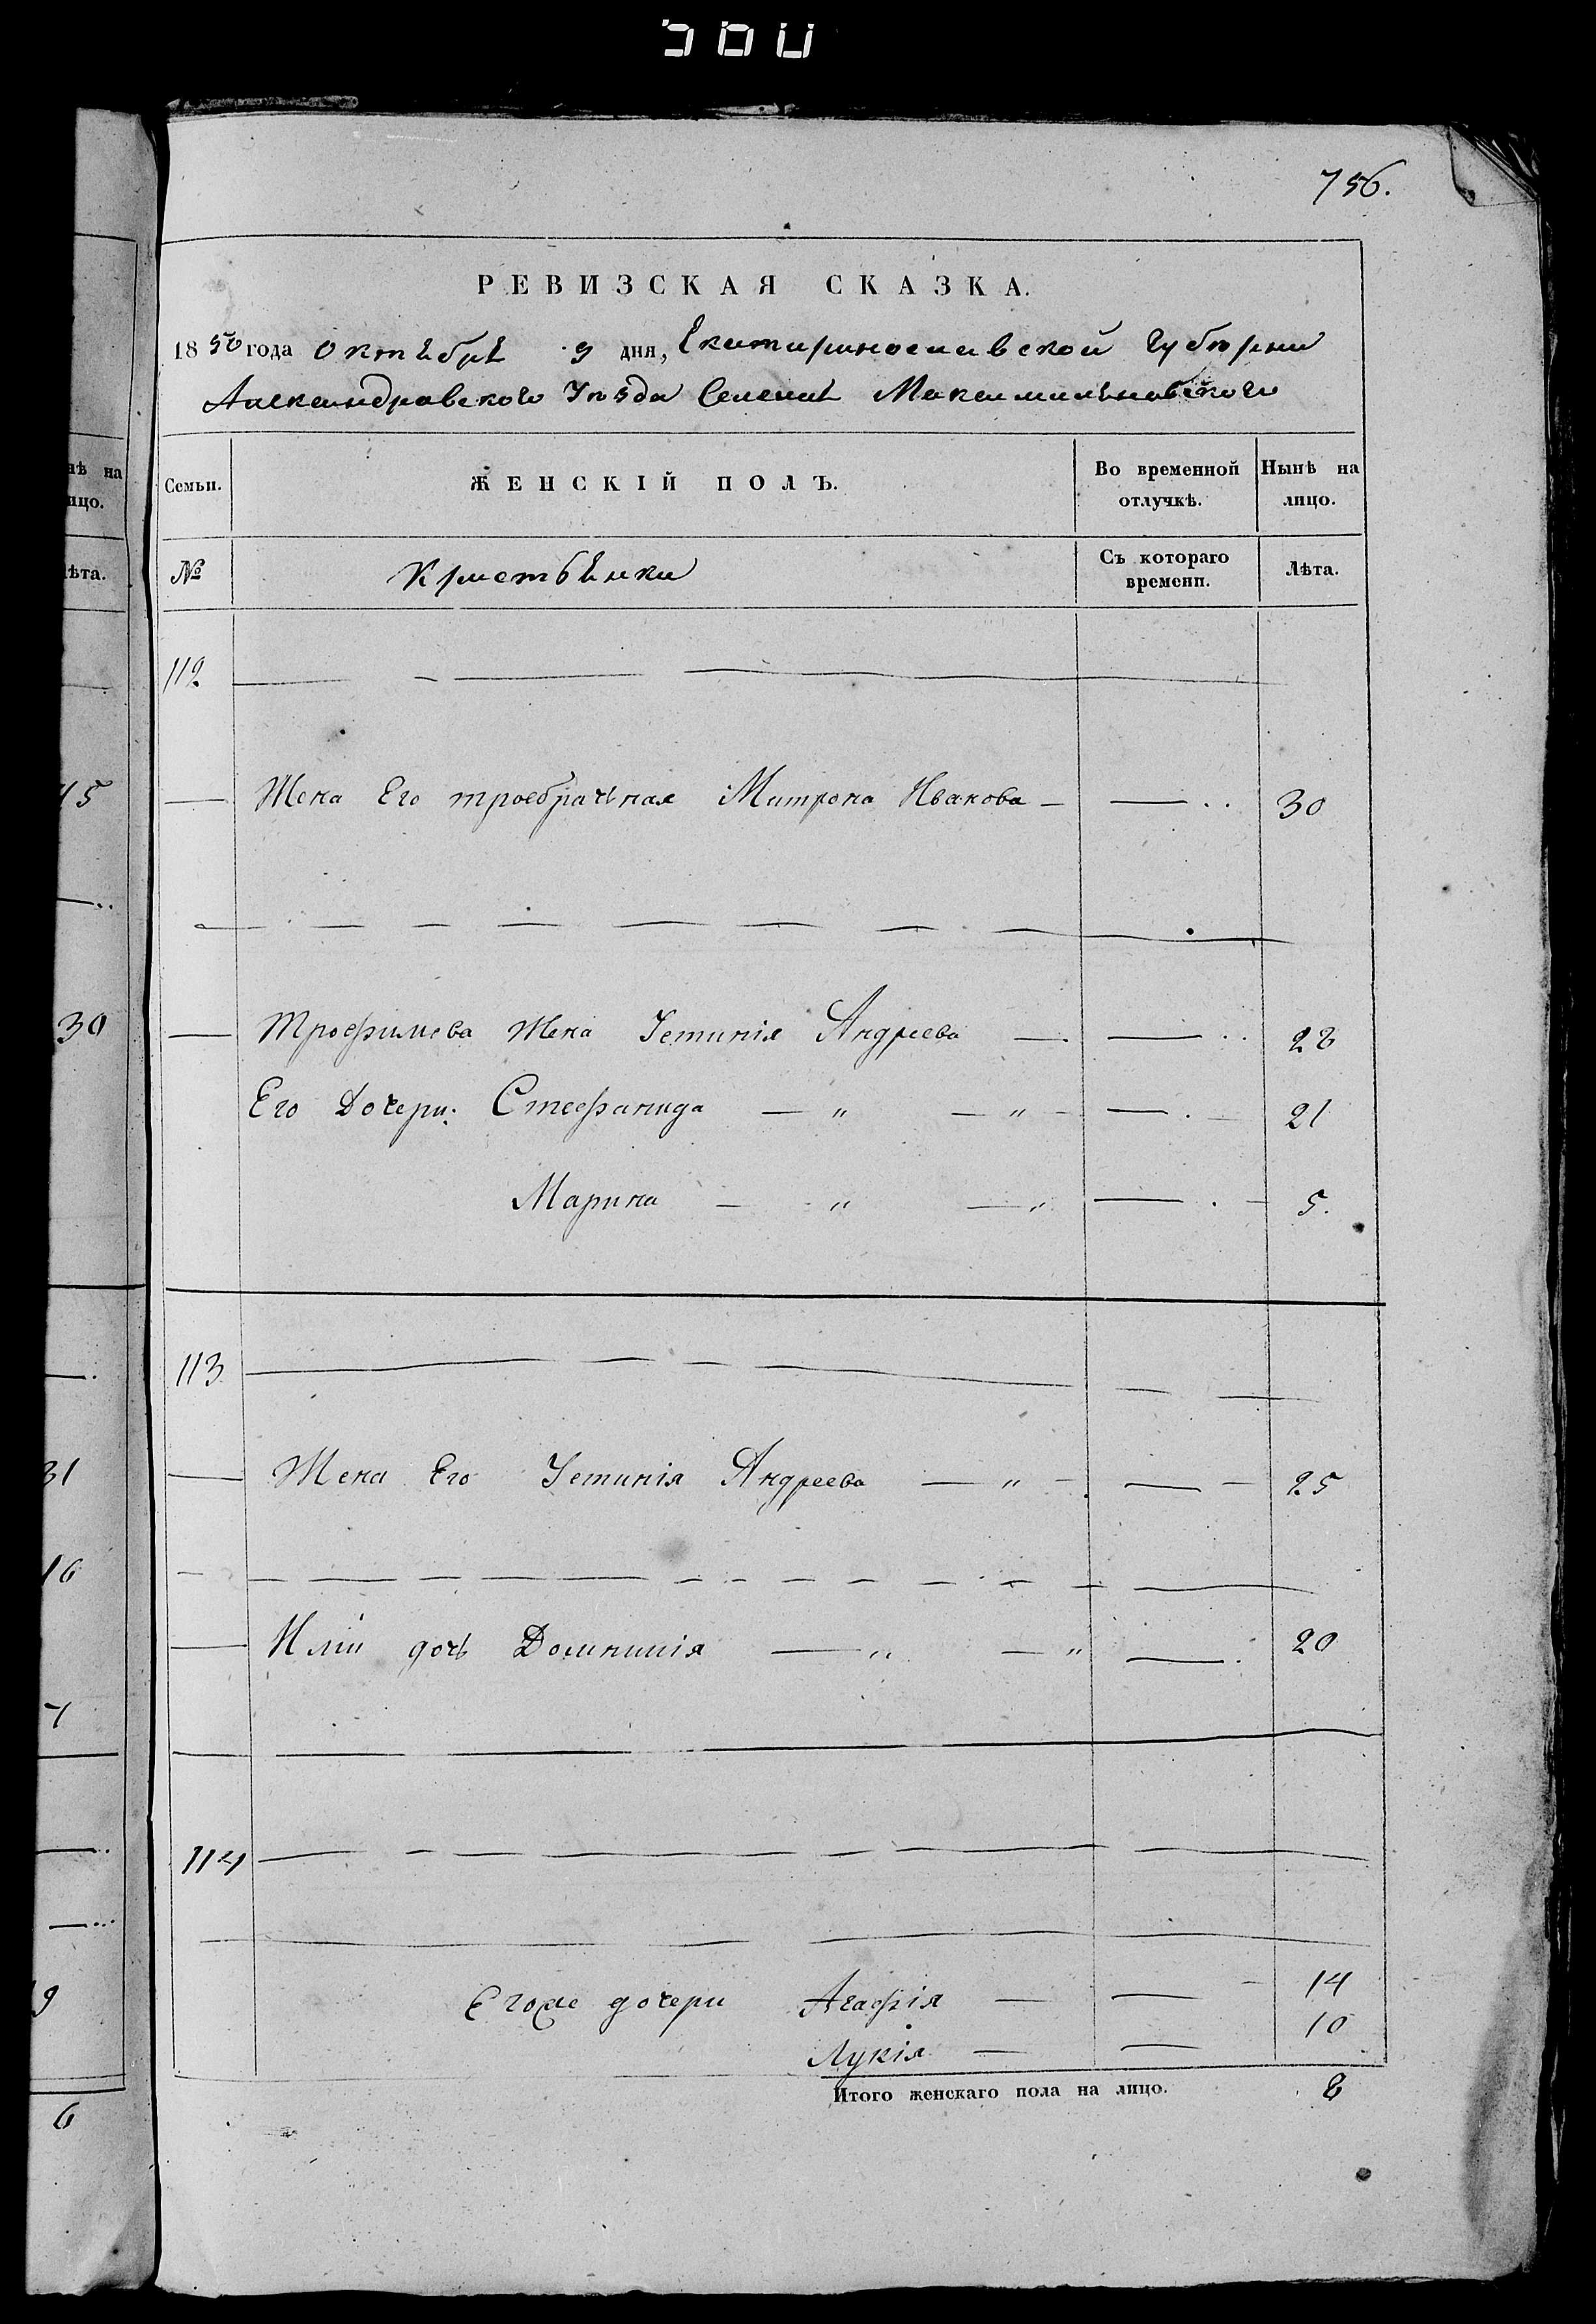 756.
РЕВИЗСКАЯ СКАЗКА.
1850 года Октября 9 дня, Екатеринославской Губернии
Александравского Уѣзда Селения Максимильяновского
Семьи. ЖЕНСКІЙ ПОЛЪ. Во временной отлучкѣ. Нынѣ на лицо.
№ Кристьянки Съ котораго времени. Лѣта.
112
Жена Его троебрачьная Матрона Иванова — — 30
Трофимова Жена Устинія Андреева — — 28
Его Дочери: Стефанида — " — " — — 21
Марина — " — " — 5.
113
Жена Его Устинія Андреева — " — — 25
дочь Домникія — " — " — 20
114
Егоже дочери Агафія — — 14
Лукія — — 10
Итого женскаго пола на лицо. 8
нѣ на
ицо.
ѣта.
15
30
31
16
7
9
6